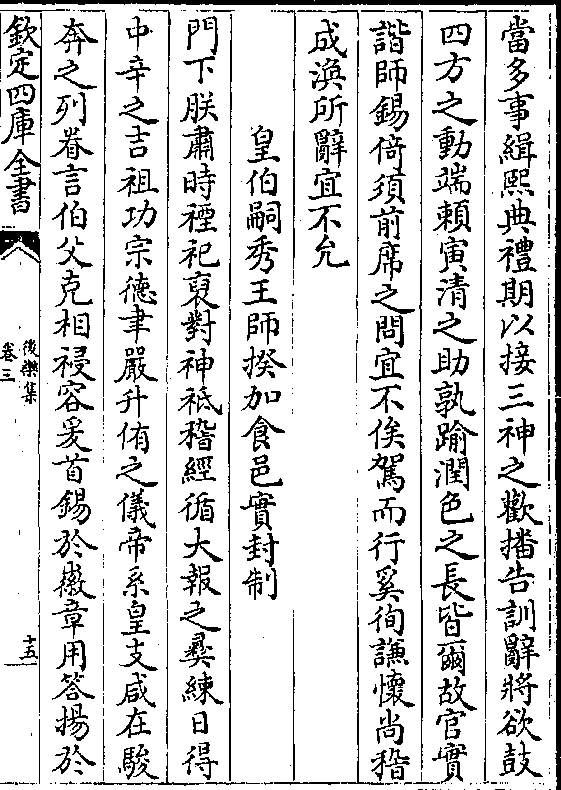 當多事緝熙典禮期以接三神之歡播告訓辭將欲鼓
四方之動端頼寅清之助孰踰潤色之長皆爾故官實
諧師錫倚須前席之問宜不俟駕而行奚徇謙懷尚稽
成渙所辭宜不允
皇伯嗣秀王師揆加食邑實封制
門下朕肅時禋祀裒對神祗稽經循大報之彛練日得
中辛之吉祖功宗德聿嚴升侑之儀帝系皇支咸在駿
奔之列眷言伯父克相祲容爰首錫於徽章用答揚於
欽定四庫全書
後樂集
卷三
十五